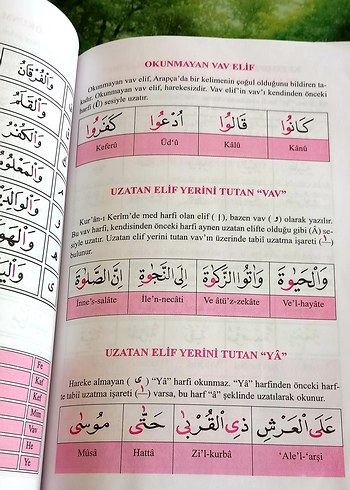 وَالْفُرْقَانُ
وَالْقَلَمُ
وَالْكُفْرُ
Fe
Kaf
Kef
Mim
Vav
He
Ye
OKUNMAYAN VAV ELİF
Okunmayan vav elif, Arapça'da bir kelimenin çoğul olduğunu bildiren ta-
kıdır. Okunmayan vav elif, harekesizdir. Vav elif'in vav'ı kendinden önceki
harfi (Û) sesiyle uzatır.
كَانُوا قَالُوا اُدْعُوا كَفَرُوا
Keferû Üd'û Kâlû Kânû
UZATAN ELİF YERİNİ TUTAN “VAV”
Kur'ân-ı Kerîm'de med harfi olan elif ( ا ), bazen vav ( و ) olarak yazılır.
Bu vav harfi, kendisinden önceki harfi aynen uzatan elifte olduğu gibi (Â) se-
siyle uzatır. Uzatan elif yerini tutan vav'ın üzerinde tabiî uzatma işareti ( ٰ )
bulunur.
وَالْحَيٰوةَ وَاٰتُوا الزَّكٰوةَ اِلَى النَّجٰوةِ اِنَّ الصَّلٰوةَ
İnne's-salâte İle'n-necâti Ve âtü'z-zekâte Ve'l-hayâte
UZATAN ELİF YERİNİ TUTAN “YÔ
Hareke almayan ( ى ) “Yâ” harfi okunmaz. “Yâ” harfinden önceki harf-
te tabiî uzatma işareti ( ٰ ) varsa, bu harf “â” şeklinde uzatılarak okunur.
عَلَى الْعَرْشِ ذِي الْقُرْبٰى حَتّٰى مُوسٰى
Mûsâ Hattâ Zi'l-kurbâ 'Ale'l-'arşi